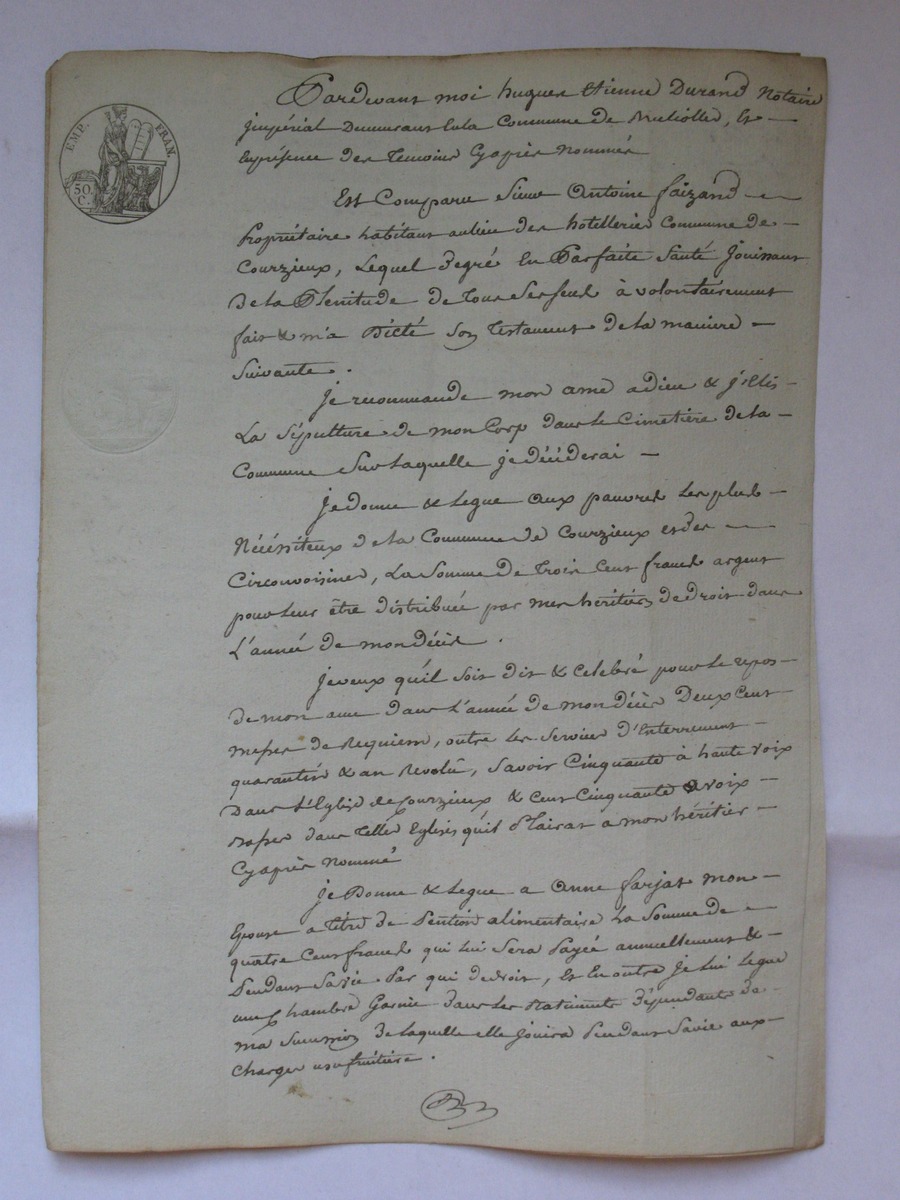 EMP. FRAN.
50.
C.
Pardevant moi hugues Etienne Durand Notaire
jmpérial Demeurant En la Commune de, Et
En présence des Temoins Cyaprès nommés
Est Comparu Sieur Antoine faizand
Propriétaire habitant au lieu des hotelleries Commune de
Courzieux, Lequel degré En Parfaite Santé Jouissant
De la Plenitude de Tous Ses Sens à volontairement
fait & m'a Dicté Son Testament de la maniere
Suivante.
Je recommande mon ame a dieu & j'Elis
La Sépulture de mon Corp dans le Cimetière de la
Commune Sur laquelle je décéderai
Je donne & Legue aux pauvres Les plus
Nécéssiteux de la Commune de Courzieux et des
Circonvoisines, La Somme de Trois Cent francs argent
pour Leur être distribuée par mes héritiers de droit dans
L'année de mon décès.
Je veux qu'il Soit dit & Celebré pour le repos
de mon ame dans L'année de mon décès Deux Cent
messes de Requiem, outre Les Services d'Enterrement
quarantin & an Revolu, Savoir Cinquante à haute voix
Dans L'Eglise de Courzieux & Cent Cinquante a voix
basses dans Telles Eglises qu'il Plairat a mon héritier
Cyaprès nommé
Je Donne & Legue a Anne farjat mon
Epouse a Titre de Pention alimentaire La Somme de
quatre Cent francs qui Lui Sera Payée annuellement &
Pendant Sa vie Par qui de droit, Et En outre Je Lui Legue
une Chambre Garnie dans Les Batiments dépendants de
ma Succession de laquelle elle Jouira Pendant Sa vie aux
Charges usufruitiere.